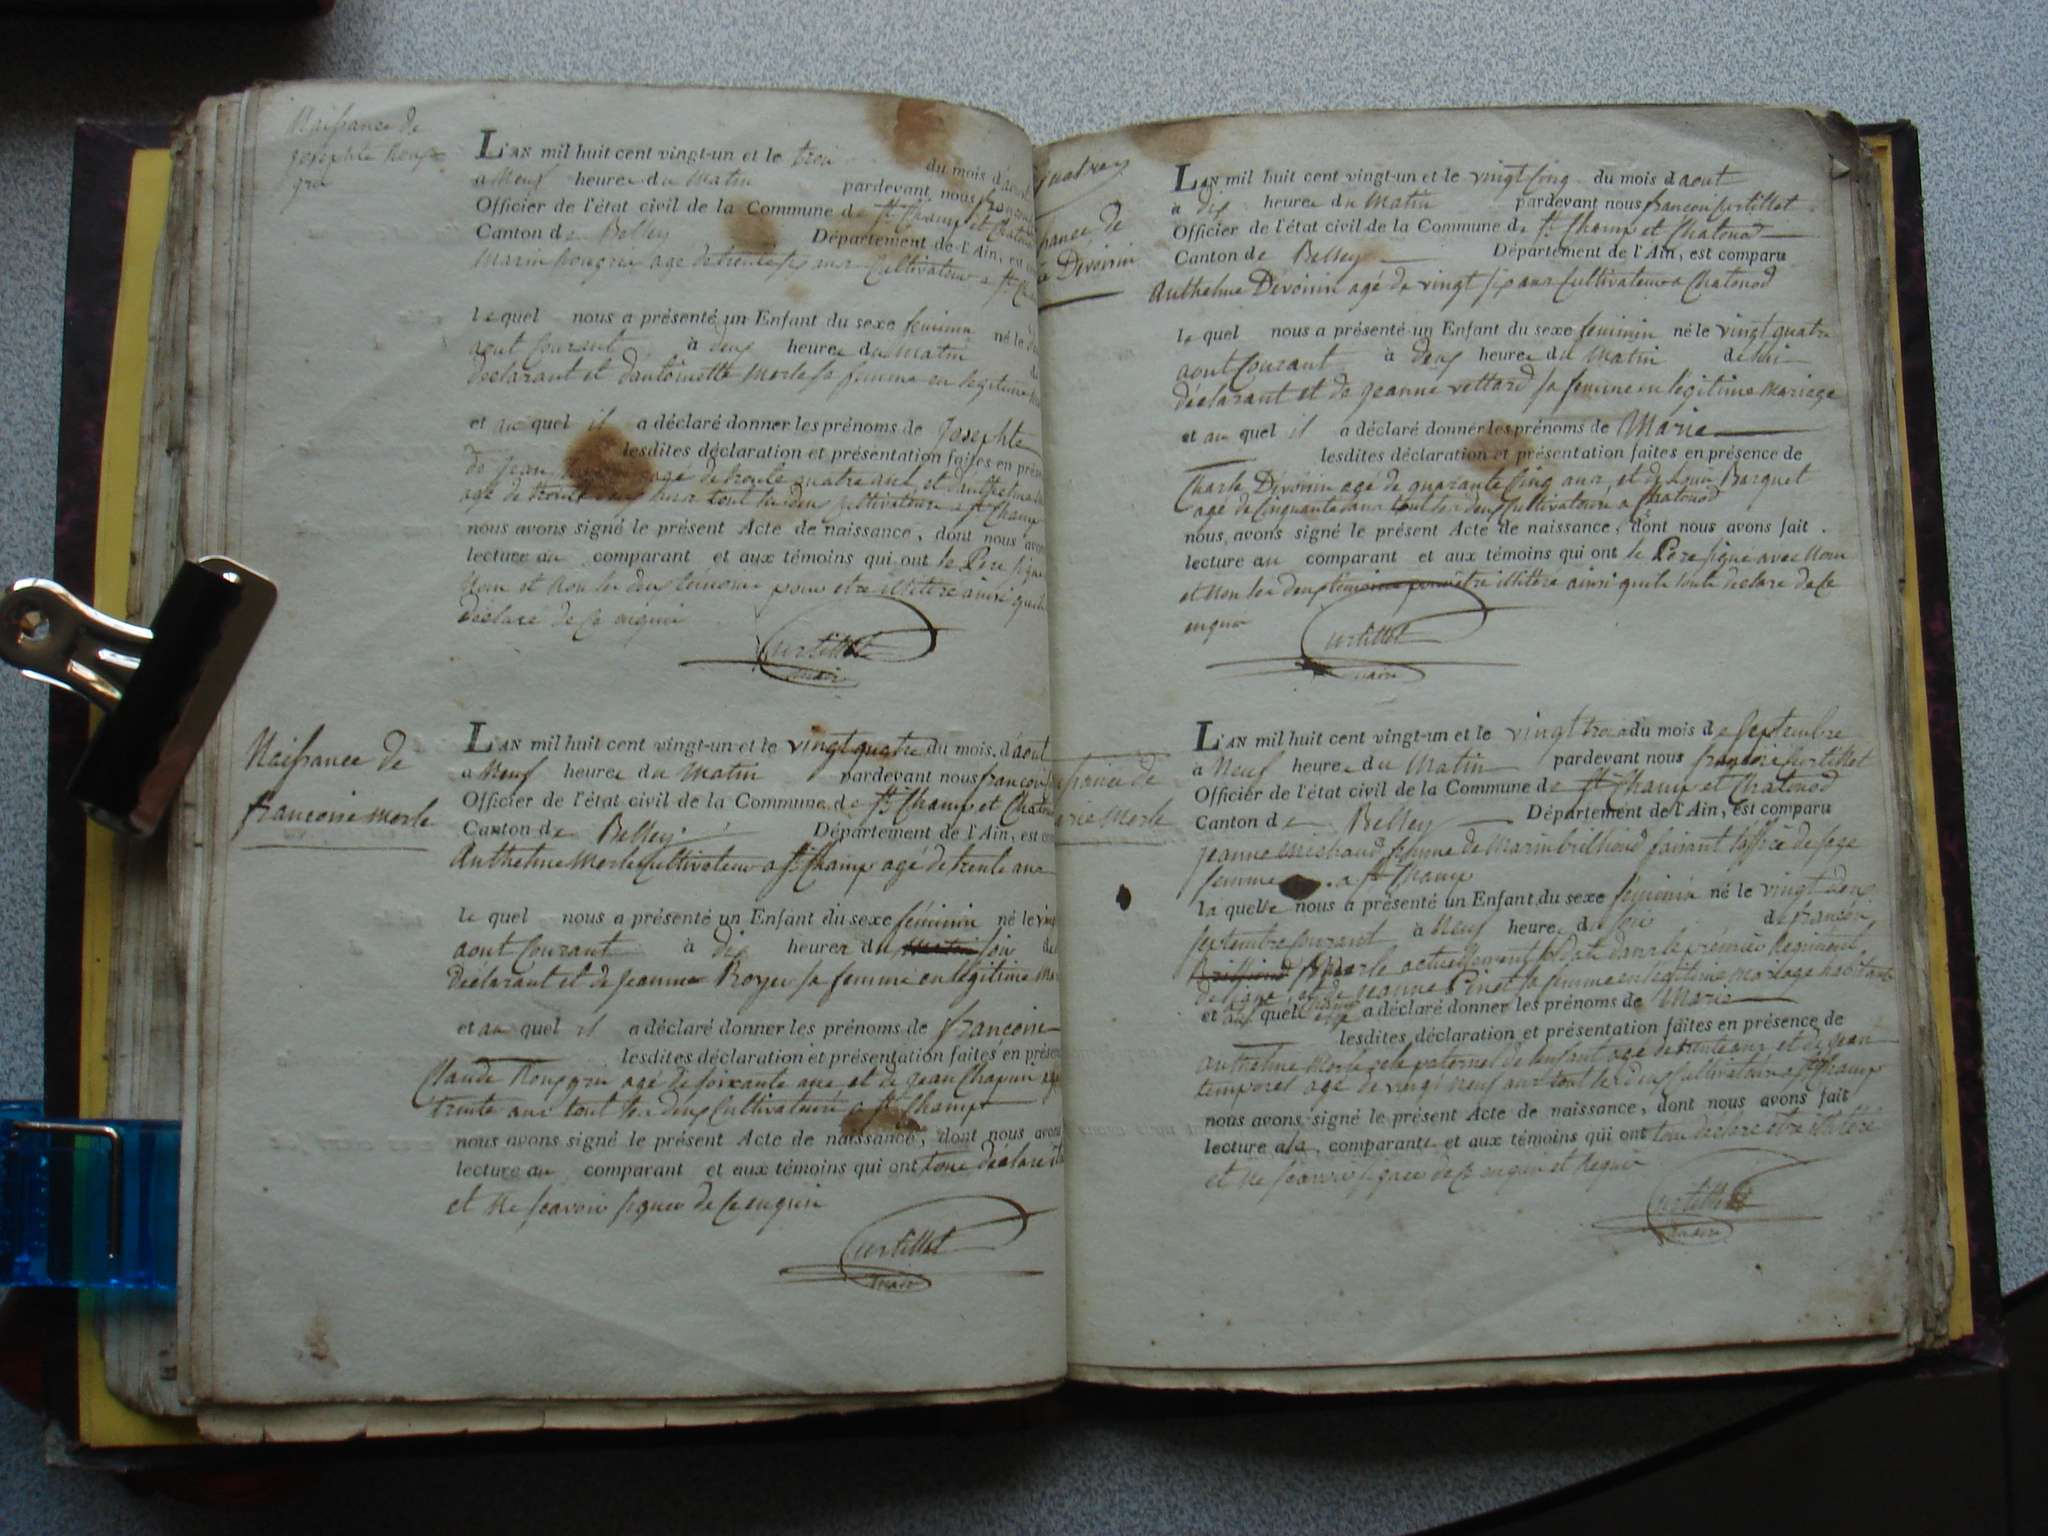 Naissance de
Josephte Rou
gri
L'AN mil huit cent vingt-un et le trois du mois d'aout
a Neuf heures du Matin pardevant nous
Officier de l'état civil de la Commune de St Champ et Chatonod
Canton de Belley Département de l'Ain, est
Marin Rougrin agé de trente six ans Cultivateur a St
le quel nous a présenté un Enfant du sexe feminin né le
aout Courant à deux heures du Matin
déclarant et d'antoinette Merle sa femme en legitime
et au quel il a déclaré donner les prénoms de Josephte
lesdites déclaration et présentation faites en
de jean agé de trente quatre ans et d'anthelme
agé de trente ans tout les deux Cultivateurs a St Champ
nous avons signé le présent Acte de naissance, dont nous
lecture au comparant et aux témoins qui ont le Père signé
Nous et Non les deux temoins pour etre illitéré ainsi
déclaré de ce enquis
Curtillet
maire
Naissance de
francoise Merle
L'AN mil huit cent vingt-un et le vingt quatre du mois d'aout
a Neuf heures du Matin pardevant nous francois
Officier de l'état civil de la Commune de St Champ et Chatonod
Canton de Belley Département de l'Ain, est
Anthelme Merle Cultivateur a St Champ agé de trente ans
le quel nous a présenté un Enfant du sexe féminin né le
aout Courant à dix heures du Matin soir de
déclarant et de Jeanne Royer sa femme en légitime
et au quel il a déclaré donner les prénoms de francoise
lesdites déclaration et présentation faites en
Claude Rougrin agé de soixante ans et de jean Chapuis
trente ans tout les deux Cultivateurs a St Champ
nous avons signé le présent Acte de naissance, dont nous
lecture au comparant et aux témoins qui ont tous déclaré
et ne scavoir signer de ce enquis
Curtillet
maire
quatre
de
Devoirin
L'AN mil huit cent vingt-un et le vingt Cinq du mois d'aout
à dix heures du Matin pardevant nous francois Curtillet
Officier de l'état civil de la Commune de St Champ et Chatonod
Canton de Belley Département de l'Ain, est comparu
Anthelme Devoirin agé de vingt six ans Cultivateur a Chatonod
le quel nous a présenté un Enfant du sexe feminin né le vingt quatre
aout Courant à deux heures du Matin de lui
déclarant et de jeanne vettard sa femme en légitime Mariage
et au quel il a déclaré donner les prénoms de Marie
lesdites déclaration et présentation faites en présence de
Charle Dévoirin agé de quarante Cinq ans et de Louis Barquet
agé de Cinquante ans tout les deux Cultivateurs a Chatonod
nous avons signé le présent Acte de naissance, dont nous avons fait
lecture au comparant et aux témoins qui ont le Père signé avec Nous
et Non les deux témoins pour être illitéré ainsi qu'ils l'ont declaré de ce
enquis
Curtillet
maire
de
Merle
L'AN mil huit cent vingt-un et le vingt trois du mois de Septembre
a Neuf heures du Matin pardevant nous francois Curtillet
Officier de l'état civil de la Commune de St Champ et Chatonod
Canton de Belley Département de l'Ain, est comparu
Jeanne femme de Marin brilliond faisant l'office de sage
femme a St Champ
la quelle nous a présenté un Enfant du sexe féminin né le vingt deux
septembre Courant à Neuf heures du soir de francois
Merle actuellement soldat dans le premier Regiment
de ligne et de jeanne Pinet sa femme en légitime mariage habitant
et au quel elle a déclaré donner les prénoms de Marie
lesdites déclaration et présentation faites en présence de
anthelme Merle oncle paternel de l'enfant agé de trente ans et de jean
temporel agé de vingt neuf ans tout les deux Cultivateurs a St Champ
nous avons signé le présent Acte de naissance, dont nous avons fait
lecture a la comparante et aux témoins qui ont tous declaré etre illitéré
et ne scavoir signer de ce enquis et requis
Curtillet
maire